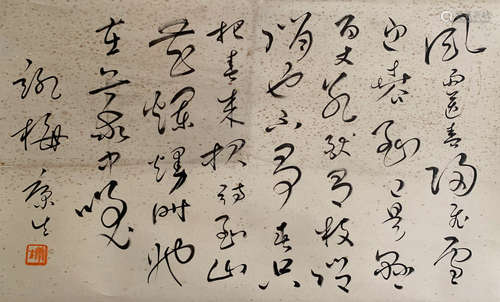 风雨送春归飞雪
迎春到已是悬
崖百丈冰犹有花枝俏
俏也不争春只
把春来报待到山
花烂漫时她
在丛中笑
咏梅 康生